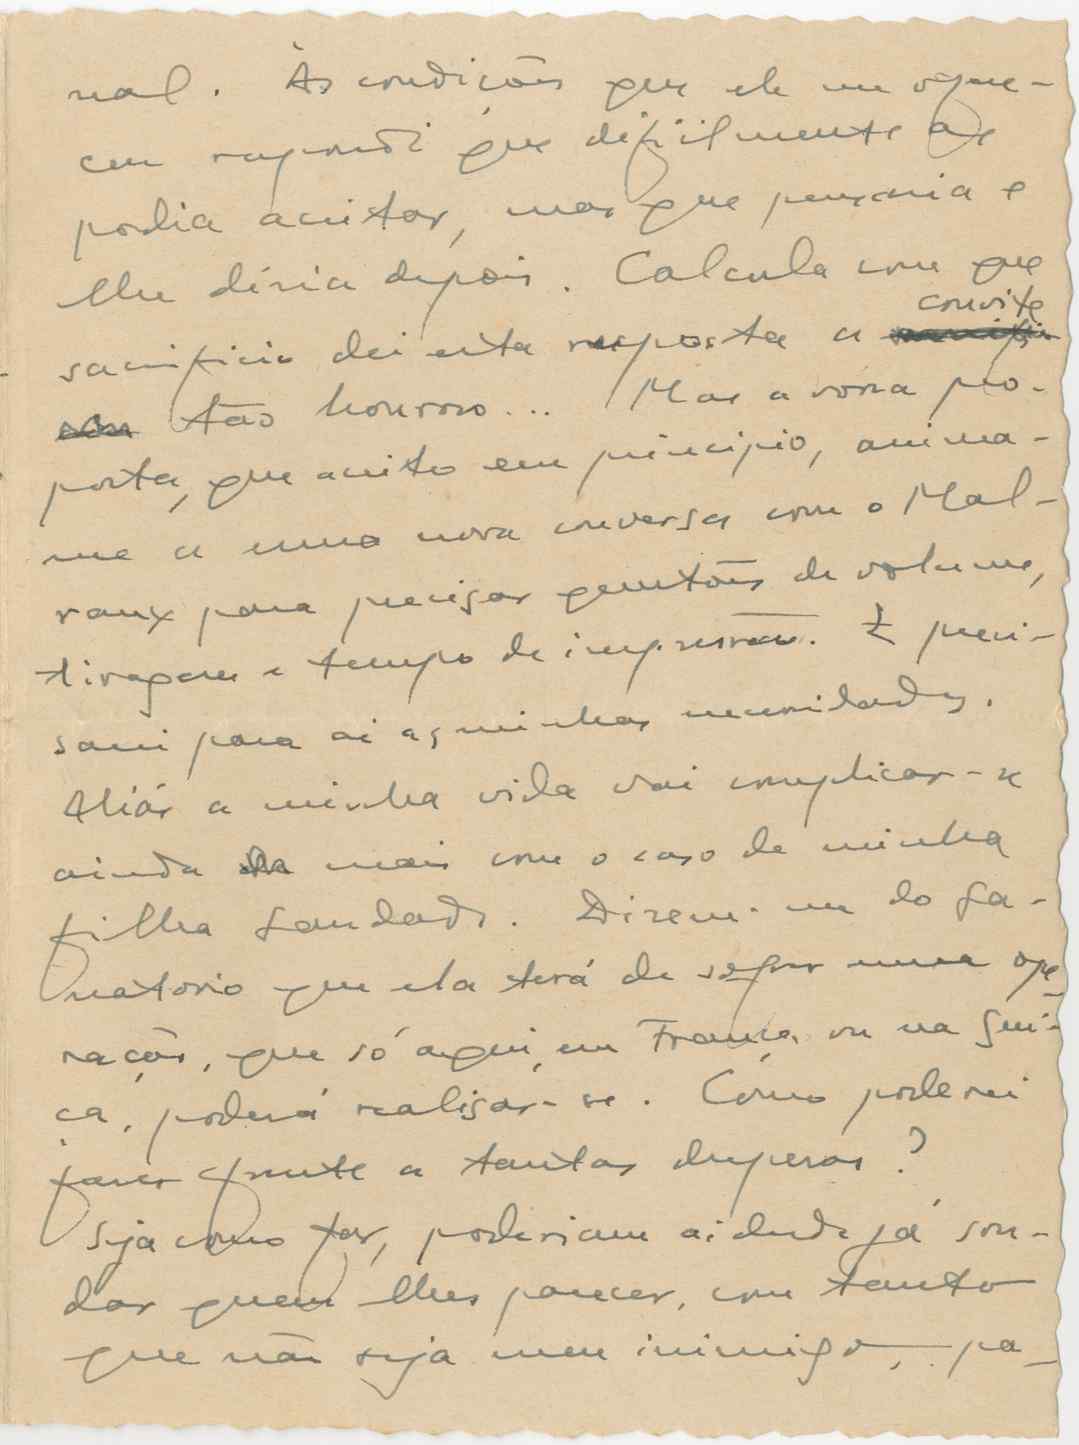 nal. Às condições que ele me ofere-
ceu respondi que dificilmente as
podia aceitar, mas que pensaria e
lhe diria depois. Calcula com que
sacrificio dei esta resposta a convite
tão honroso... Mas a vossa pro-
posta, que aceito em principio, anima-
me a uma nova conversa com o Mal-
raux para precisar questões de volume,
tiragem e tempo de impressão. E preci-
sarei para aí as minhas necessidades.
Aliás a minha vida vai complicar-se
ainda mais com o caso de minha
filha Saudade. Dizem-me do Sa-
natorio que ela terá de sofrer uma ope-
ração, que só aqui, em França, ou na Sui-
ça, poderá realisar-se. Como poderei
fazer frente a tantas despesas?
Seja como for, poderiam aí desde já son-
dar quem lhes parecer, com tanto
que não seja meu inimigo, pa-